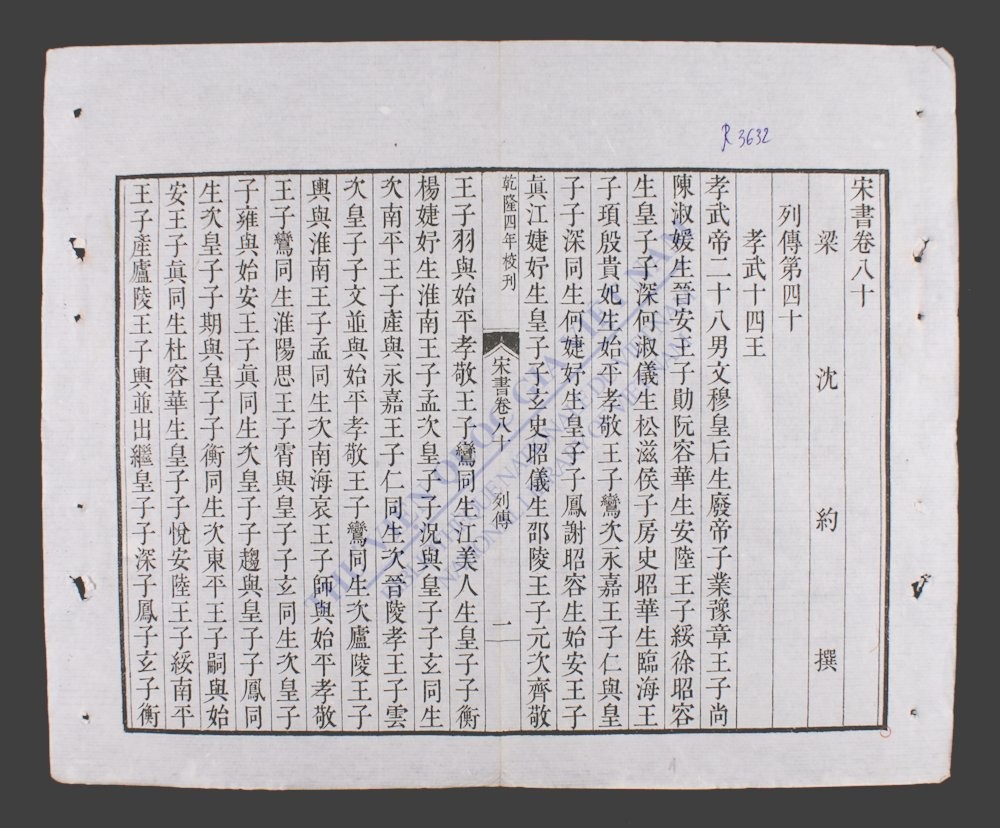 R 3632
宋書卷八十
梁 沈 約 撰
列傳第四十
孝武十四王
孝武帝二十八男文穆皇后生廢帝子業豫章王子尚
陳淑媛生晉安王子勛阮容華生安陸王子綏徐昭容
生皇子子深何淑儀生松滋侯子房史昭華生臨海王
子頊殷貴妃生始平孝敬王子鸞次永嘉王子仁與皇
子子深同生何婕妤生皇子子鳳謝昭容生始安王子
眞江婕妤生皇子子玄史昭儀生邵陵王子元次齊敬
乾隆四年校刊
宋書卷八十 列傳 一
王子羽與始平孝敬王子鸞同生江美人生皇子子衡
楊婕妤生淮南王子孟次皇子子況與皇子子玄同生
次南平王子產與永嘉王子仁同生次晉陵孝王子雲
次皇子子文並與始平孝敬王子鸞同生次廬陵王子
輿與淮南王子孟同生次南海哀王子師與始平孝敬
王子鸞同生淮陽思王子霄與皇子子玄同生次皇子
子雍與始安王子眞同生次皇子子趨與皇子子鳳同
生次皇子子期與皇子子衡同生次東平王子嗣與始
安王子眞同生杜容華生皇子子悅安陸王子綏南平
王子產廬陵王子輿並出繼皇子子深子鳳子玄子衡
THƯ VIỆN QUỐC GIA VIỆT NAM
BIBLIOTHÈQUE NATIONALE DU VIETNAM
NATIONAL LIBRARY OF VIETNAM